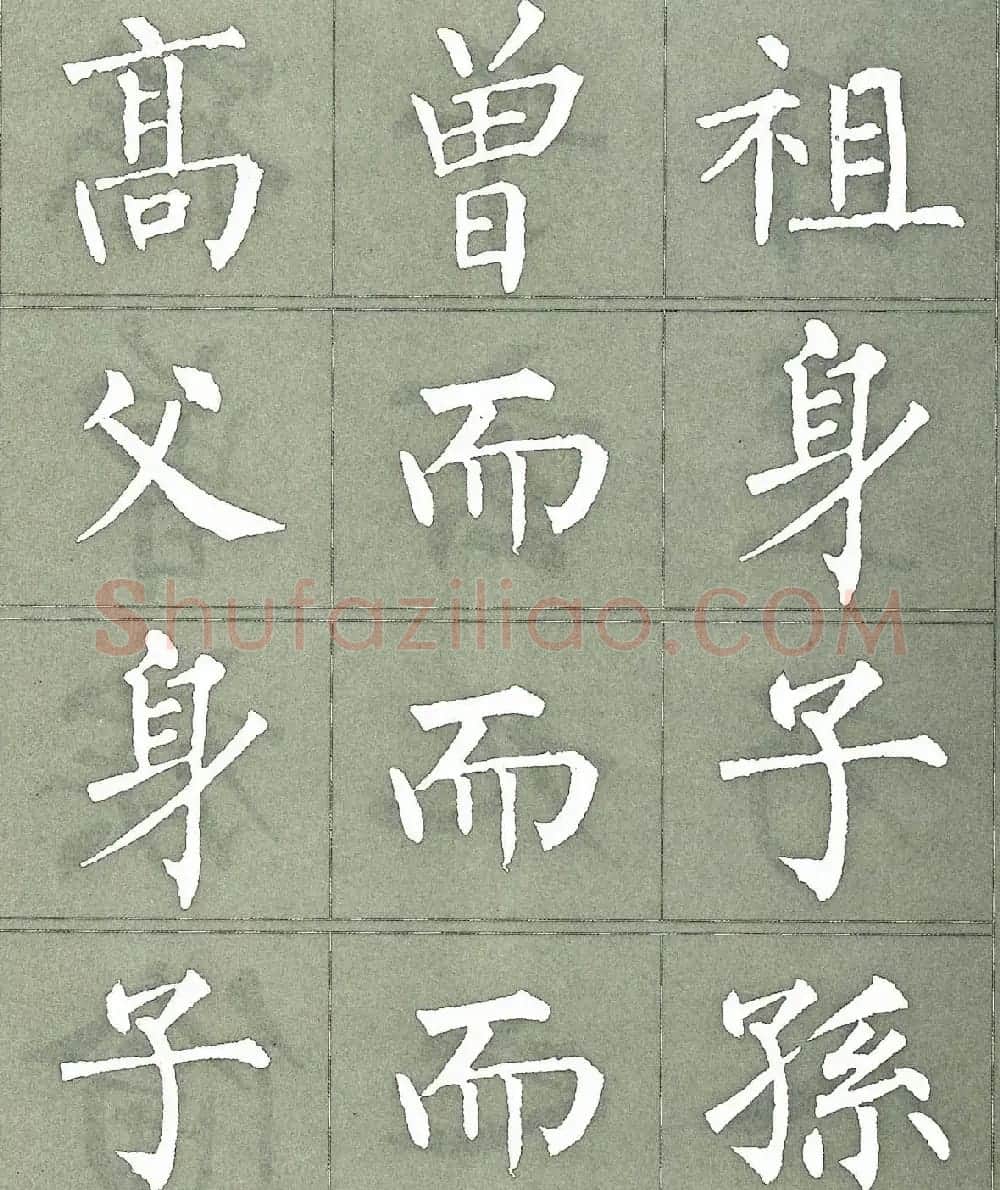 高曾祖
父而身
身而子
子而孫
Shufaziliao.COM